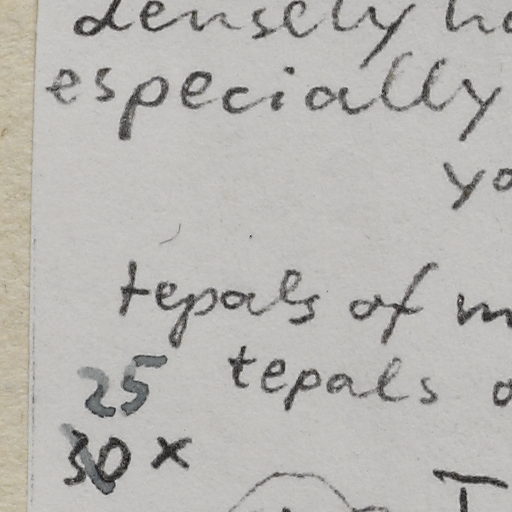 densely
especially
tepals of
25 tepals
30 x